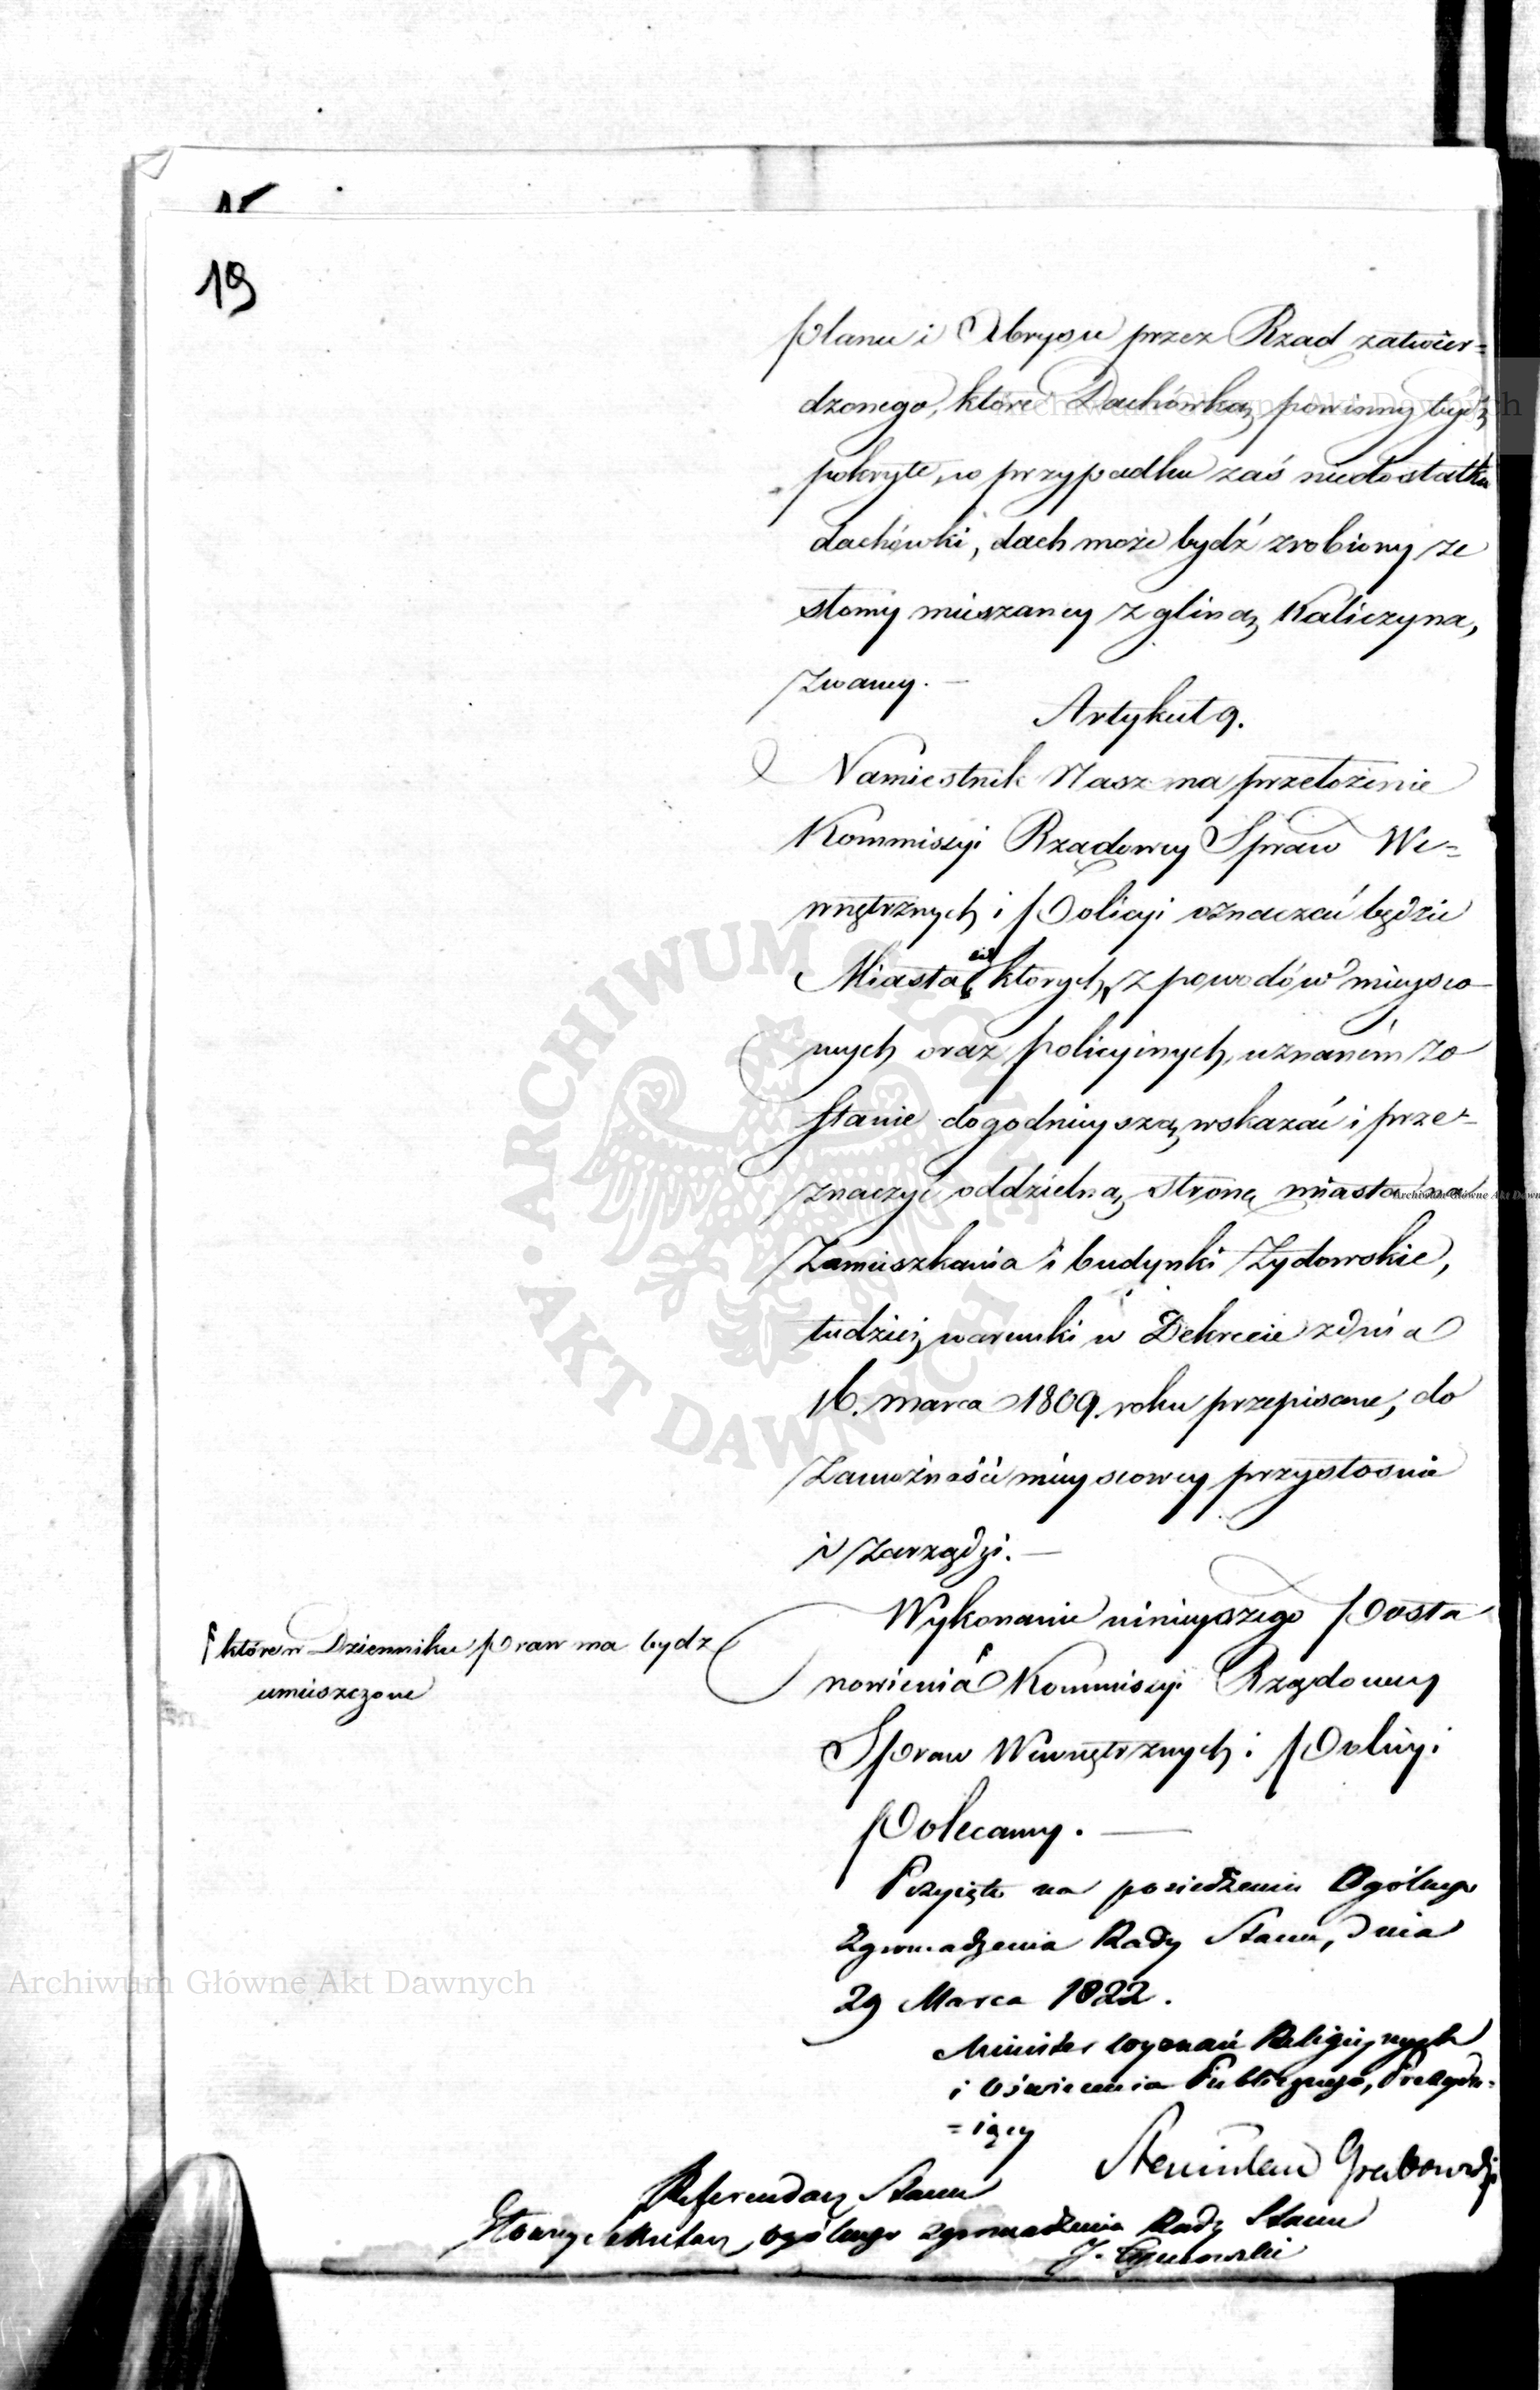 19
planu i Abrysu przez Rząd zatwier=
dzonego, które Dachówką powinny bydź
pokryte, w przypadku zaś niedostatku
dachówki, dach może bydź zrobiony ze
słomy mieszaney z gliną Kaliczyna,
zwaney. —
Artykuł 9.
Namiestnik Nasz na przełożenie
Kommissyi Rządowey Spraw We=
wnętrznych i Policyi oznaczać będzie
Miasta w których z powodów mieysco-
wych oraz policyinych, uznaném zo
stanie dogodnieyszą wskazać i prze-
znaczyć oddzielną stronę miasta na
Zamieszkania i budynki Żydowskie,
tudzież warunki w Dekrecie z dnia
16. marca 1809. roku przepisane, do
Zamożności mieyscowey przystosuie
i Zarządzi. —
Wykonanie ninieyszego Posta
nowienia Kommissyi Rządowey
Spraw Wewnętrznych i Policyi
Polecamy. —
które w Dzienniku Praw ma bydz
umieszczone
Przyięte na posiedzeniu Ogólnego
Zgromadzenia Rady Stanu, dnia
29 Marca 1822.
Minister Wyznań Religiynych
i Oświecenia Publicznego, Prezydu-
=iący
Stanisław Grabowski
Referendarz Stanu
Ogólnego Zgromadzenia Rady Stanu
J.
ARCHIWUM GŁÓWNE
AKT DAWNYCH
Archiwum Główne Akt Dawnych
Archiwum Główne Akt Dawnych